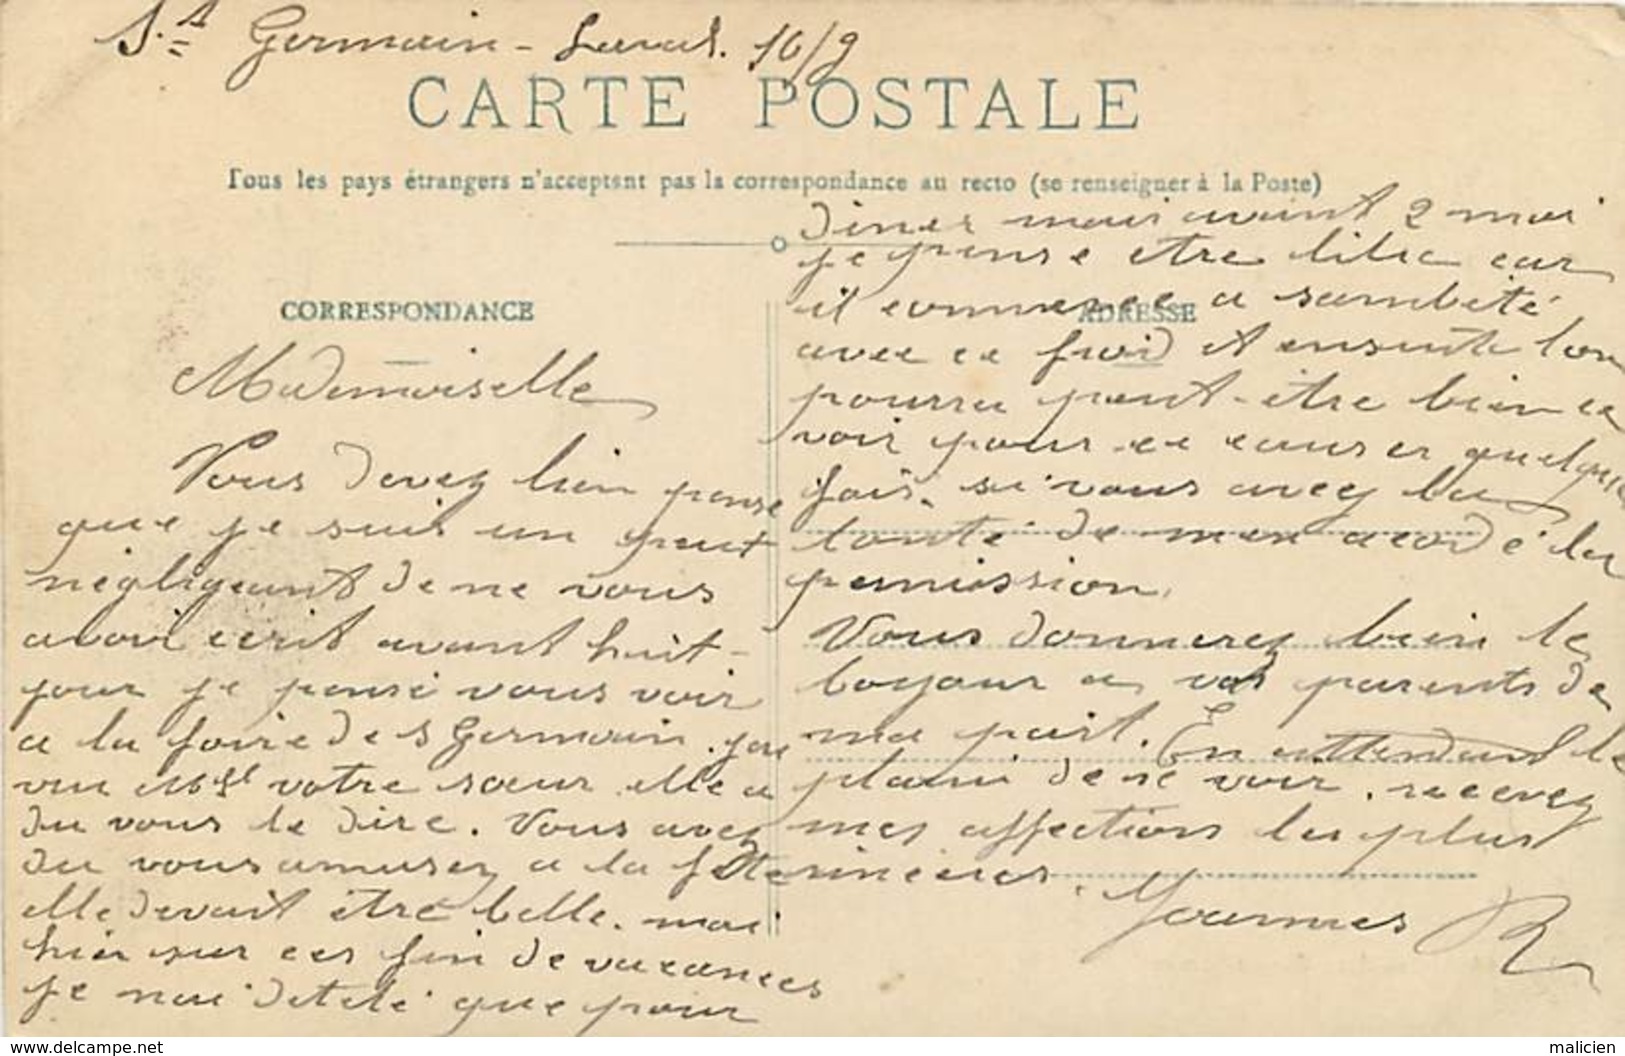 St Germain-Laval. 10/9
CARTE POSTALE
Tous les pays étrangers n'acceptent pas la correspondance au recto (se renseigner à la Poste)
CORRESPONDANCE
Mademoiselle
Vous devez bien pensé
que je suis un peut
négligeant de ne vous
avoir ecrit avant huit-
jour je pensé vous voir
a la foire de S Germain. jai
vu Melle votre sœur elle a
du vous le dire. Vous avez
du vous amusez a la fête
elle devait être belle. moi
hier sur ces fin de vacances
je nai dételé que pour
ADRESSE
diner mais avant 2 moi
je pense etre libre car
il commence a
avec ce froid et ensuite lon
pourra peut-être bien ce
voir pour ce causer quelque
fois. si vous avez la
bonté de men acordé la
permission.
Vous donnerez bien le
bonjour a vos parents de
ma part. En attendant le
plaisir de ce voir. recevez
mes affections les plus
sincères.
Joannes R
www.delcampe.net
malicien